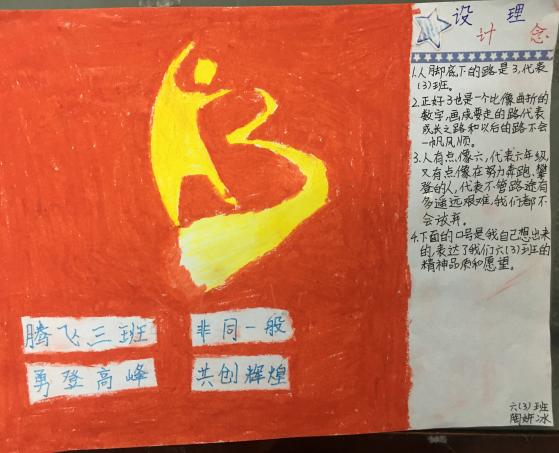 设计理念
1.人脚底下的路是3,代表
(3)班。
2.正好3也是一个比像曲折的
数字,画成要走的路代表
成长之路和以后的路不会
一帆风顺。
3.人有点像六,代表六年级
又有点像在努力奔跑、攀
登的人,代表不管路途有
多遥远艰难,我们都不
会放弃。
4.下面的口号是我自己想出来
的,表达了我们六(3)班的
精神品质和愿望。
腾飞三班 非同一般
勇登高峰 共创辉煌
六(3)班
陶妍冰